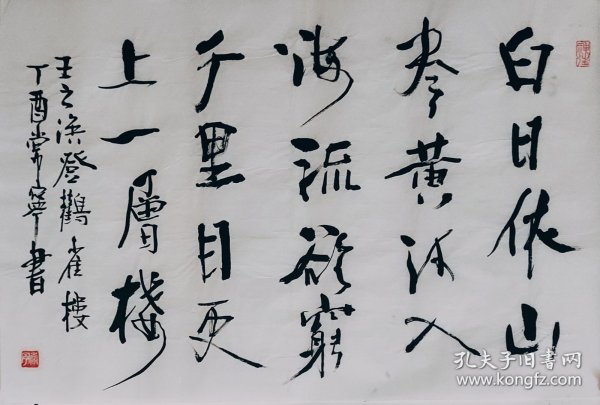 白日依山
尽黄河入
海流欲穷
千里目更
上一层楼
王之涣登鹳雀楼
丁酉常宁书
孔夫子旧书网
www.kongfz.com